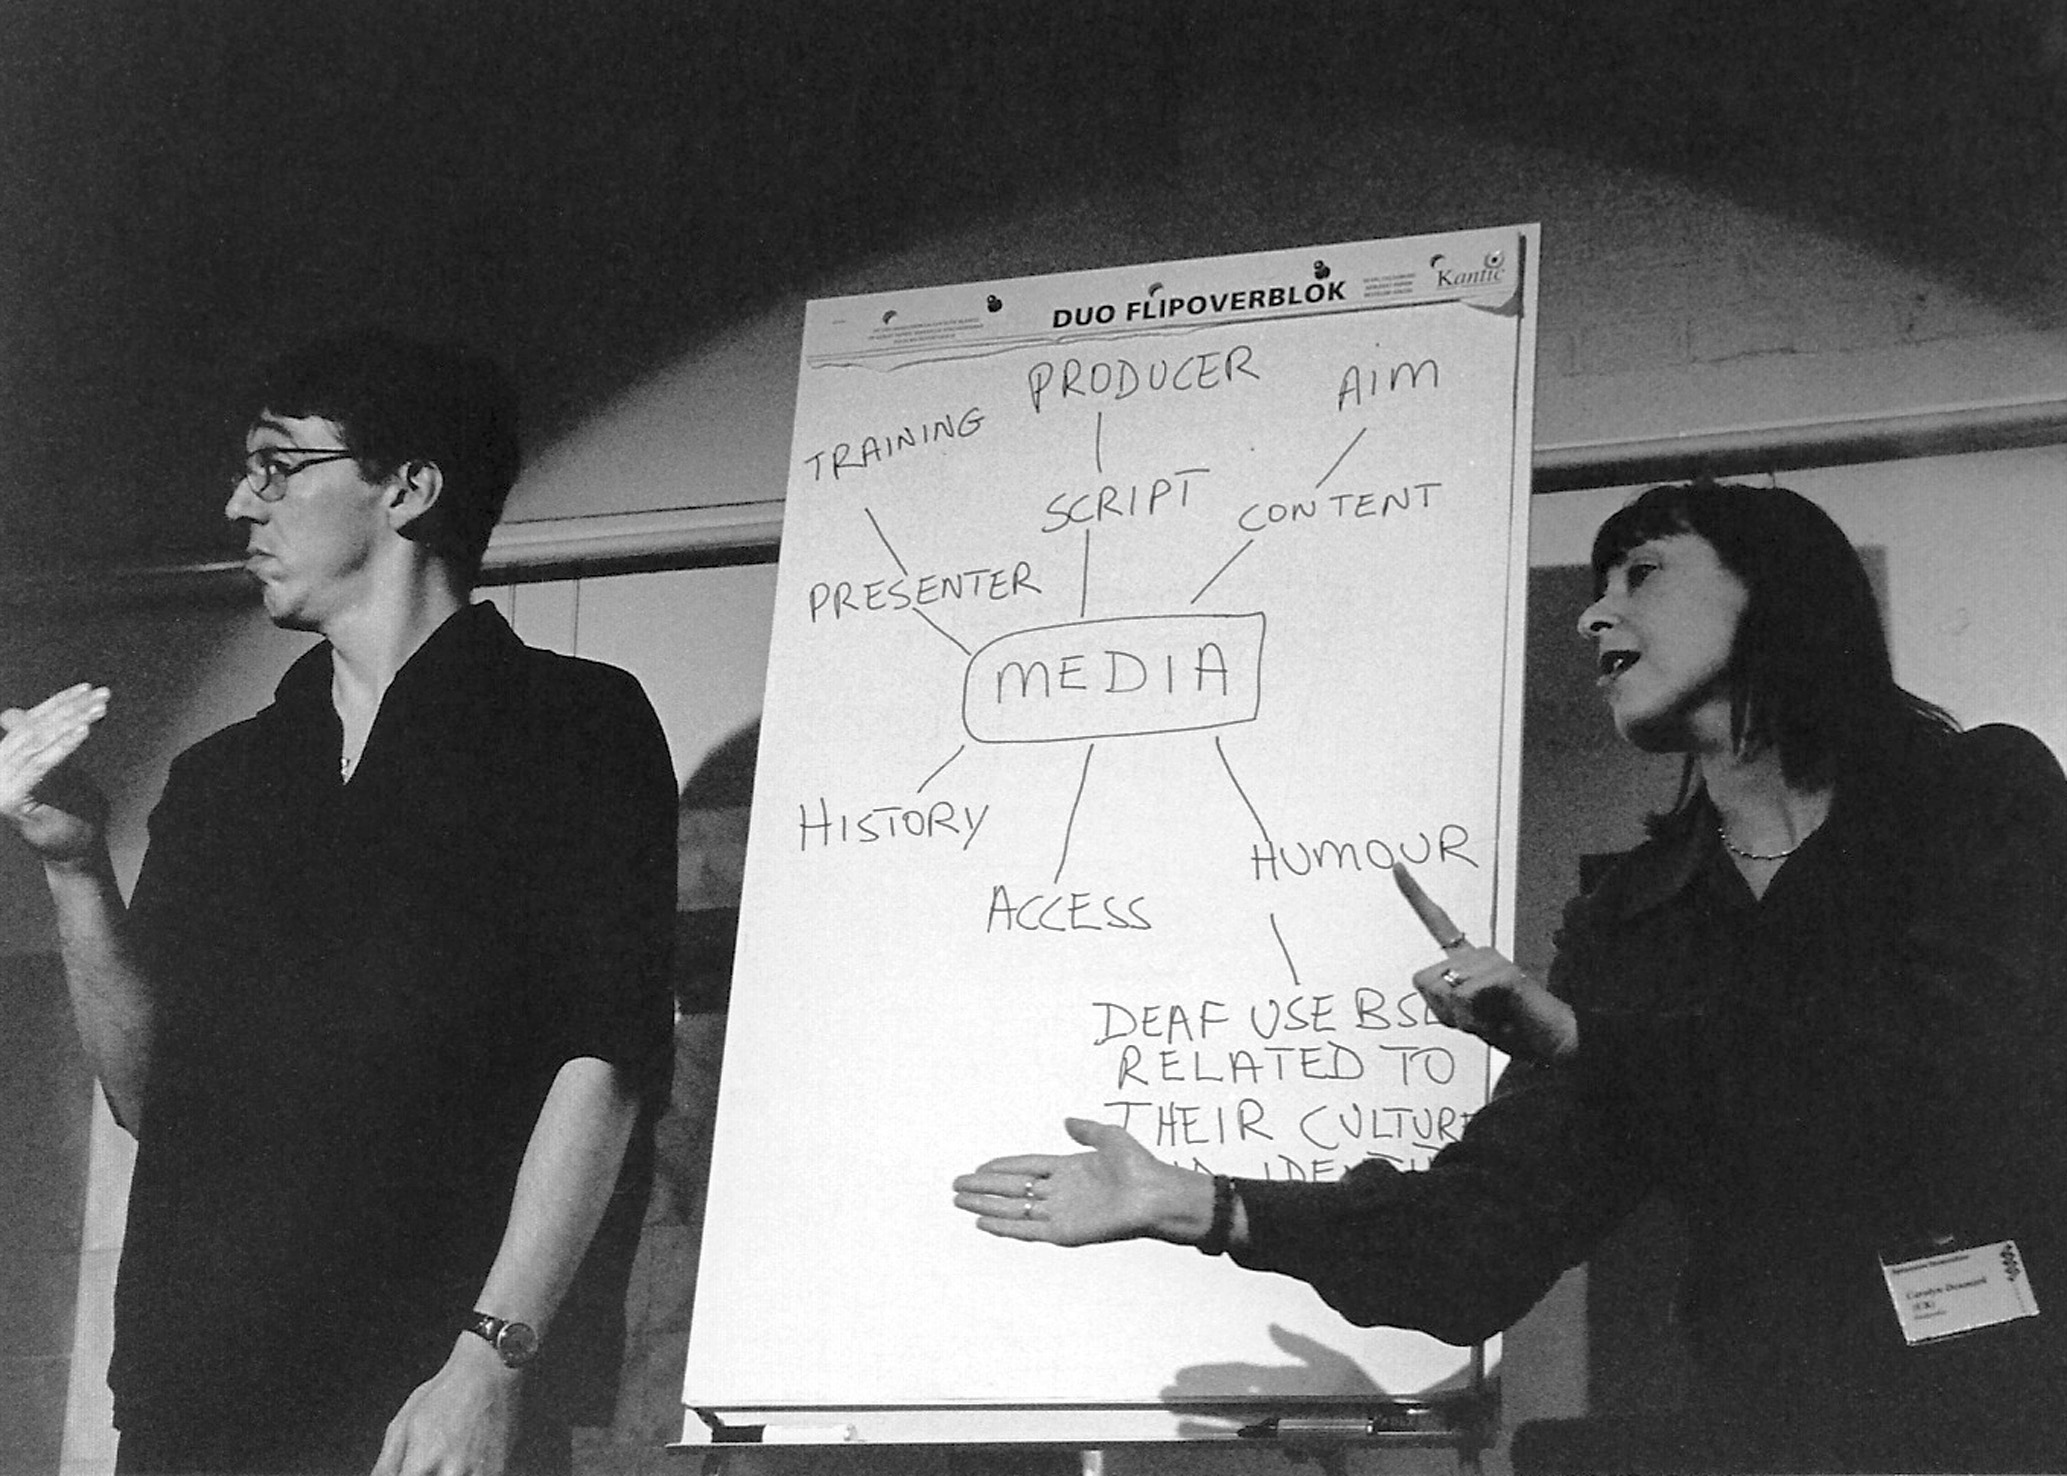 DUO FLIPOVERBLOK
Kantic
PRODUCER
AIM
TRAINING
SCRIPT
CONTENT
PRESENTER
MEDIA
HISTORY
HUMOUR
ACCESS
DEAF USE BSL
RELATED TO
THEIR CULTURE
(UK)